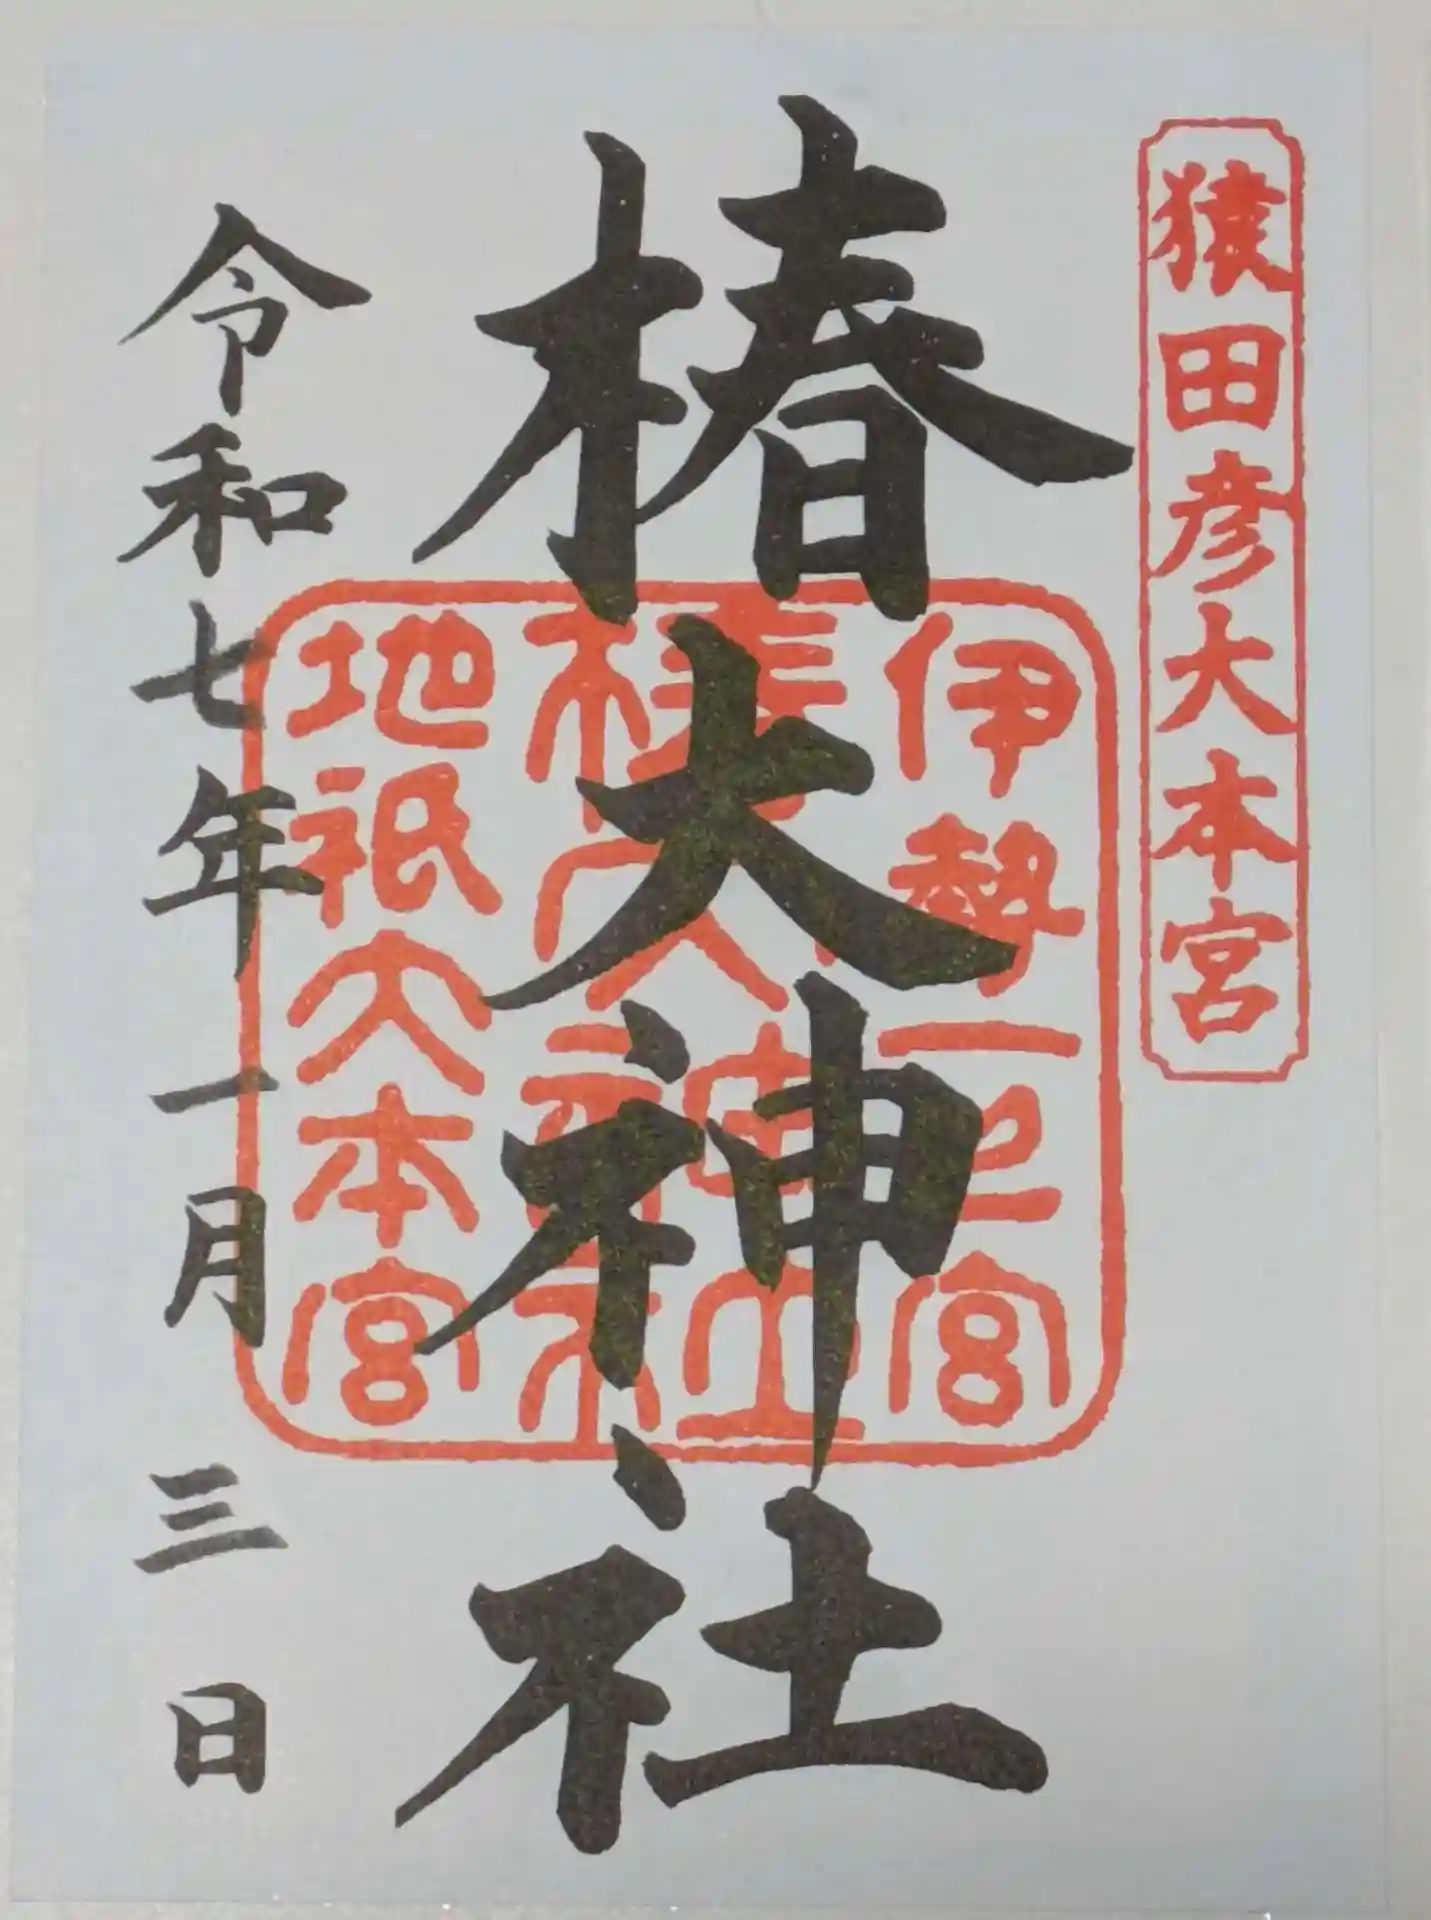 猿田彦大本宮
椿大神社
伊勢一之宮
椿大神社
地祇大本宮
令和七年一月三日